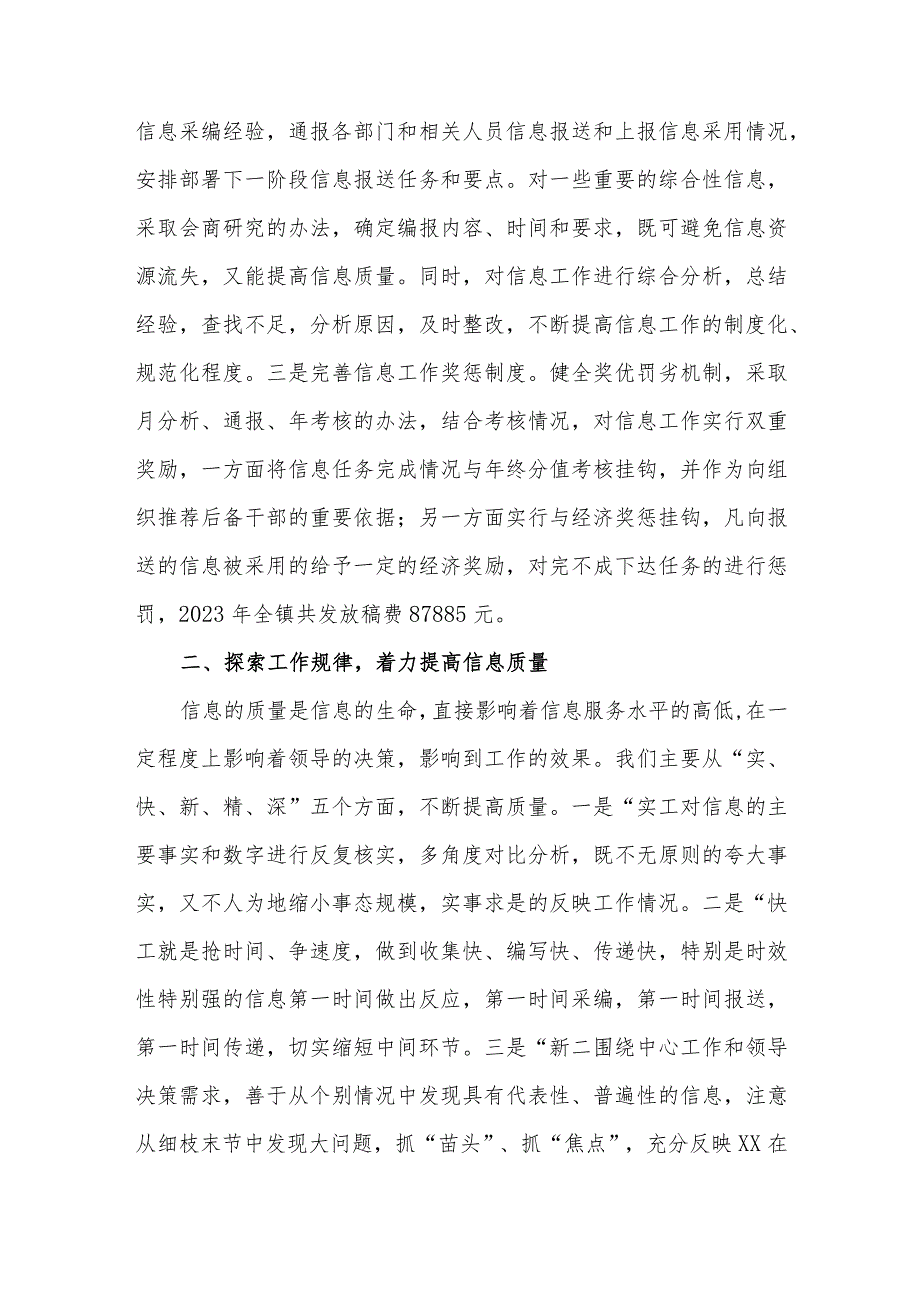 信息采编经验，通报各部门和相关人员信息报送和上报信息采用情况，
安排部署下一阶段信息报送任务和要点。对一些重要的综合性信息，
采取会商研究的办法，确定编报内容、时间和要求，既可避免信息资
源流失，又能提高信息质量。同时，对信息工作进行综合分析，总结
经验，查找不足，分析原因，及时整改，不断提高信息工作的制度化、
规范化程度。三是完善信息工作奖惩制度。健全奖优罚劣机制，采取
月分析、通报、年考核的办法，结合考核情况，对信息工作实行双重
奖励，一方面将信息任务完成情况与年终分值考核挂钩，并作为向组
织推荐后备干部的重要依据；另一方面实行与经济奖惩挂钩，凡向报
送的信息被采用的给予一定的经济奖励，对完不成下达任务的进行惩
罚，2023 年全镇共发放稿费 87885 元。
二、探索工作规律，着力提高信息质量
信息的质量是信息的生命,直接影响着信息服务水平的高低,在一
定程度上影响着领导的决策，影响到工作的效果。我们主要从“实、
快、新、精、深”五个方面，不断提高质量。一是“实工对信息的主
要事实和数字进行反复核实，多角度对比分析，既不无原则的夸大事
实，又不人为地缩小事态规模，实事求是的反映工作情况。二是“快
工就是抢时间、争速度，做到收集快、编写快、传递快，特别是时效
性特别强的信息第一时间做出反应，第一时间采编，第一时间报送，
第一时间传递，切实缩短中间环节。三是“新二围绕中心工作和领导
决策需求，善于从个别情况中发现具有代表性、普遍性的信息，注意
从细枝末节中发现大问题，抓“苗头”、抓“焦点”，充分反映 XX 在